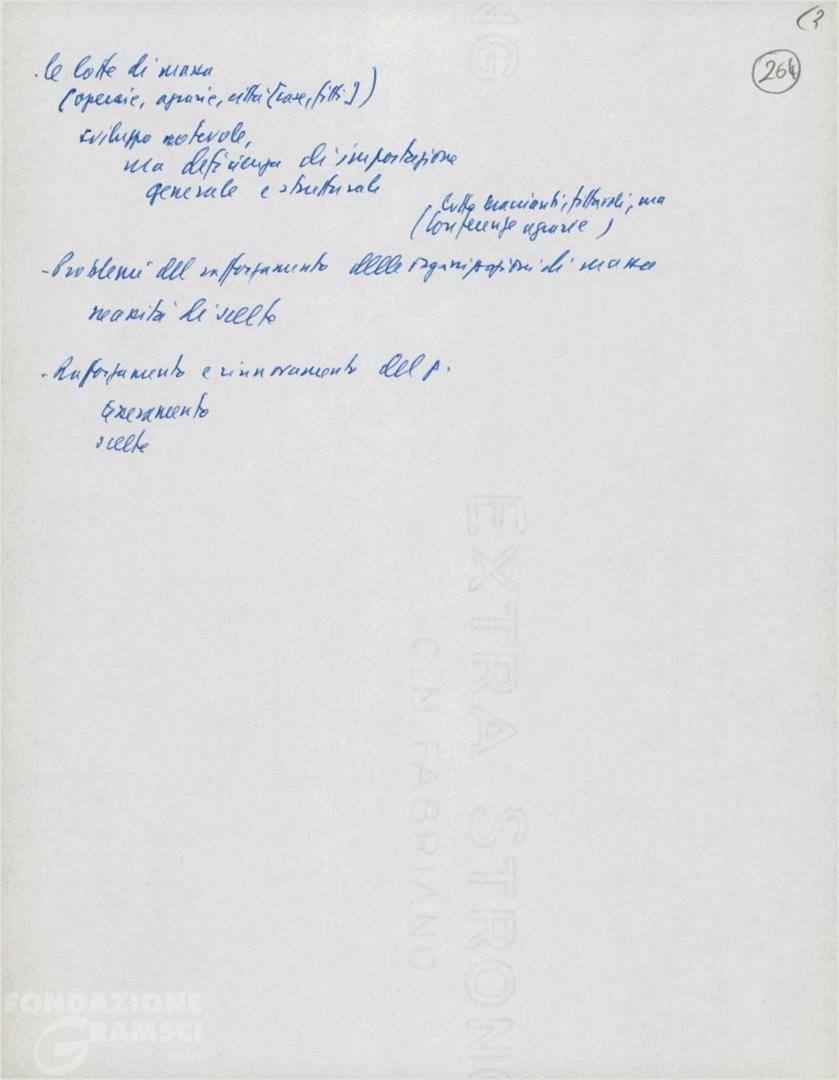 (3
264
. le lotte di massa
(operaie, agrarie, città [case, fitti])
sviluppo notevole,
ma deficienza di impostazione
generale e strutturale
lotta braccianti, fittavoli, ma
(conferenze agrarie)
- Problemi del rafforzamento delle organizzazioni di massa
necessità di scelte
- Rafforzamento e rinnovamento del p.
tesseramento
scelte
EXTRA STRONG
C.M. FABRIANO
FONDAZIONE
GRAMSCI
onlus